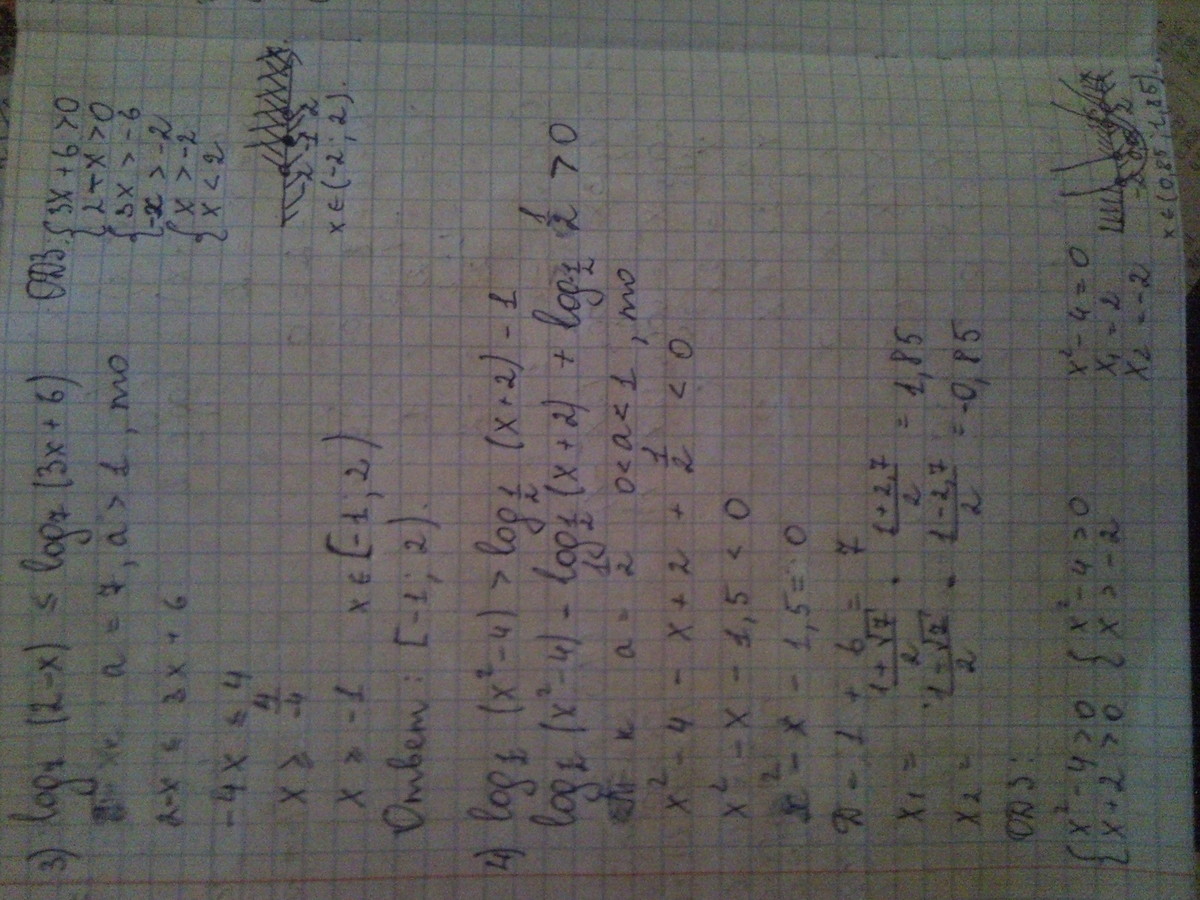 3) log₇ (2-x) ≤ log₇ (3x+6)
a = 7, a > 1, то
2-x ≤ 3x + 6
-4x ≤ 4
x ≥ 4/-4
x ≥ -1 x ∈ [-1; 2)
Ответ: [-1; 2).
ОДЗ: { 3x+6 >0
2-x >0
{ 3x > -6
-x > -2
{ x > -2
x < 2
-2 -1 2 x
x ∈ (-2; 2).
4) log 1/2 (x²-4) > log 1/2 (x+2) - 1
log 1/2 (x²-4) - log 1/2 (x+2) + log 1/2 1/2 > 0
к a = 1/2 0<a<1, то
x² - 4 - x + 2 + 1/2 < 0
x² - x - 1,5 < 0
x² - x - 1,5 = 0
D = 1 + 6 = 7
x₁ = (1+√7)/2 = (1+2,7)/2 = 1,85
x₂ = (1-√7)/2 = (1-2,7)/2 = -0,85
ОДЗ:
{ x²-4>0 { x²-4>0
x+2>0 x>-2
x²-4=0
x₁ = 2
x₂ = -2
x ∈ (0,85; 1,85).